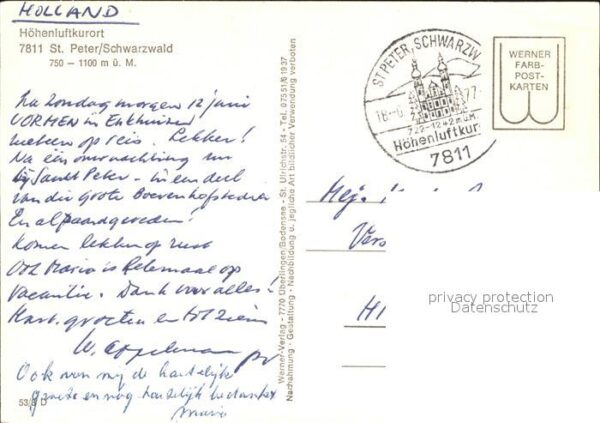 HOLLAND
Höhenluftkurort
7811 St. Peter/Schwarzwald
750 – 1100 m ü. M.
Na Zondag morgen 12 juni
VORMEN in Enkhuizen
meteen op reis. Lekker!
Na een overnachting nu
bij Sankt Peter - in een deel
van die grote Boerenhofsteden
En al paardgereden!
Komen lekker op rust
Ook Mario is helemaal op
Vacantie. Dank voor alles!
Hart. groeten en tot ziens
W.
Ook van mij de hartelijke
groeten en nog hartelijk bedankt
Mario
53/ D
Werner-Verlag - 7770 Überlingen/Bodensee - St. Ulrichstr. 54 - Tel. 07551/61937
Nachahmung - Gestaltung - Nachbildung u. jegliche Art bildlicher Verwendung verboten
ST. PETER, SCHWARZW
18.-6. 77-
722-1242 m ü.M.
Höhenluftkur
7811
WERNER
FARB-
POST-
KARTEN
Mej.
Vers
HI
privacy protection
Datenschutz